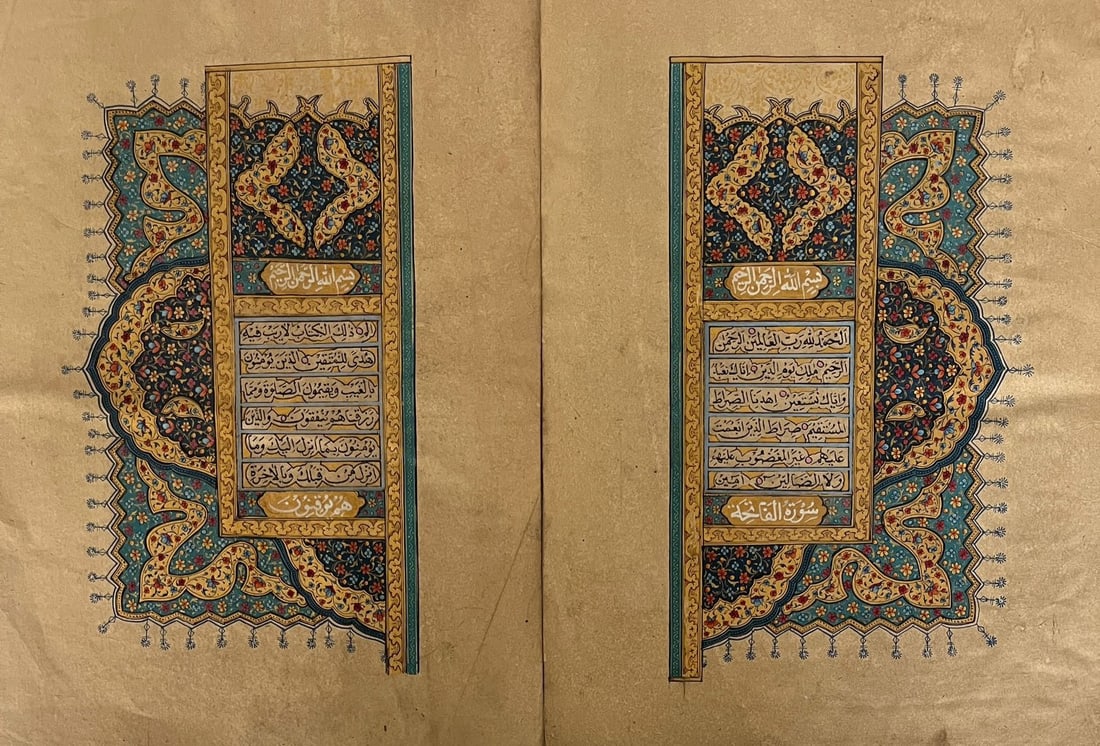 بسم الله الرحمن الرحيم
الحمد لله رب العالمين الرحمن
الرحيم ملك يوم الدين اياك نعبد
واياك نستعين اهدنا الصراط
المستقيم صراط الذين انعمت
عليهم غير المغضوب عليهم
ولا الضالين امين
سورة الفاتحة
بسم الله الرحمن الرحيم
الم ذلك الكتاب لا ريب فيه
هدى للمتقين الذين يؤمنون
بالغيب ويقيمون الصلوة ومما
رزقنهم ينفقون والذين
يؤمنون بما انزل اليك وما
انزل من قبلك وبالاخرة
هم يوقنون